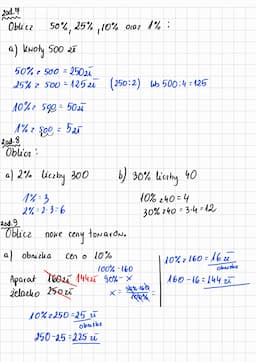 zad.7
Oblicz 50%, 25%, 10% oraz 1%:
a) kwoty 500 zł
50% z 500 = 250zł
25% z 500 = 125zł (250:2) lub 500:4=125
10% z 500 = 50zł
1% z 500 = 5zł
zad.8
Oblicz:
a) 2% liczby 300 b) 30% liczby 40
1% = 3 10% z 40 = 4
2% = 2·3=6 30% z 40 = 3·4=12
zad.9
Oblicz nowe ceny towarów.
a) obniżka cen o 10%
100%-160
Aparat 160zł 144zł 90%-x
żelazko 250zł x=
10% z 160 = 16zł
obniżka
160-16=144zł
10% z 250 = 25zł
obniżka
250-25=225zł